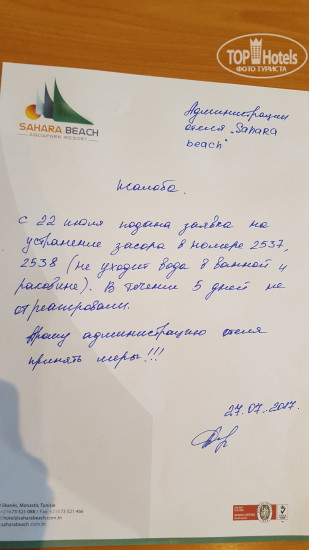 TOPHotels
ФОТО ТУРИСТА
SAHARA BEACH
AQUAPARK RESORT
Администрации
отеля „Sahara
beach"
Жалоба.
С 22 июля подана заявка на
устранение засора в номере 2537,
2538 (не уходит вода в ванной и
раковине). В течении 5 дней не
отреагировали.
Прошу администрацию отеля
принять меры!!!
27.07.2017.
Skanès, Monastir, Tunisie
73 521 088 / Fax +216 73 521 466
saharabeach.com.tn